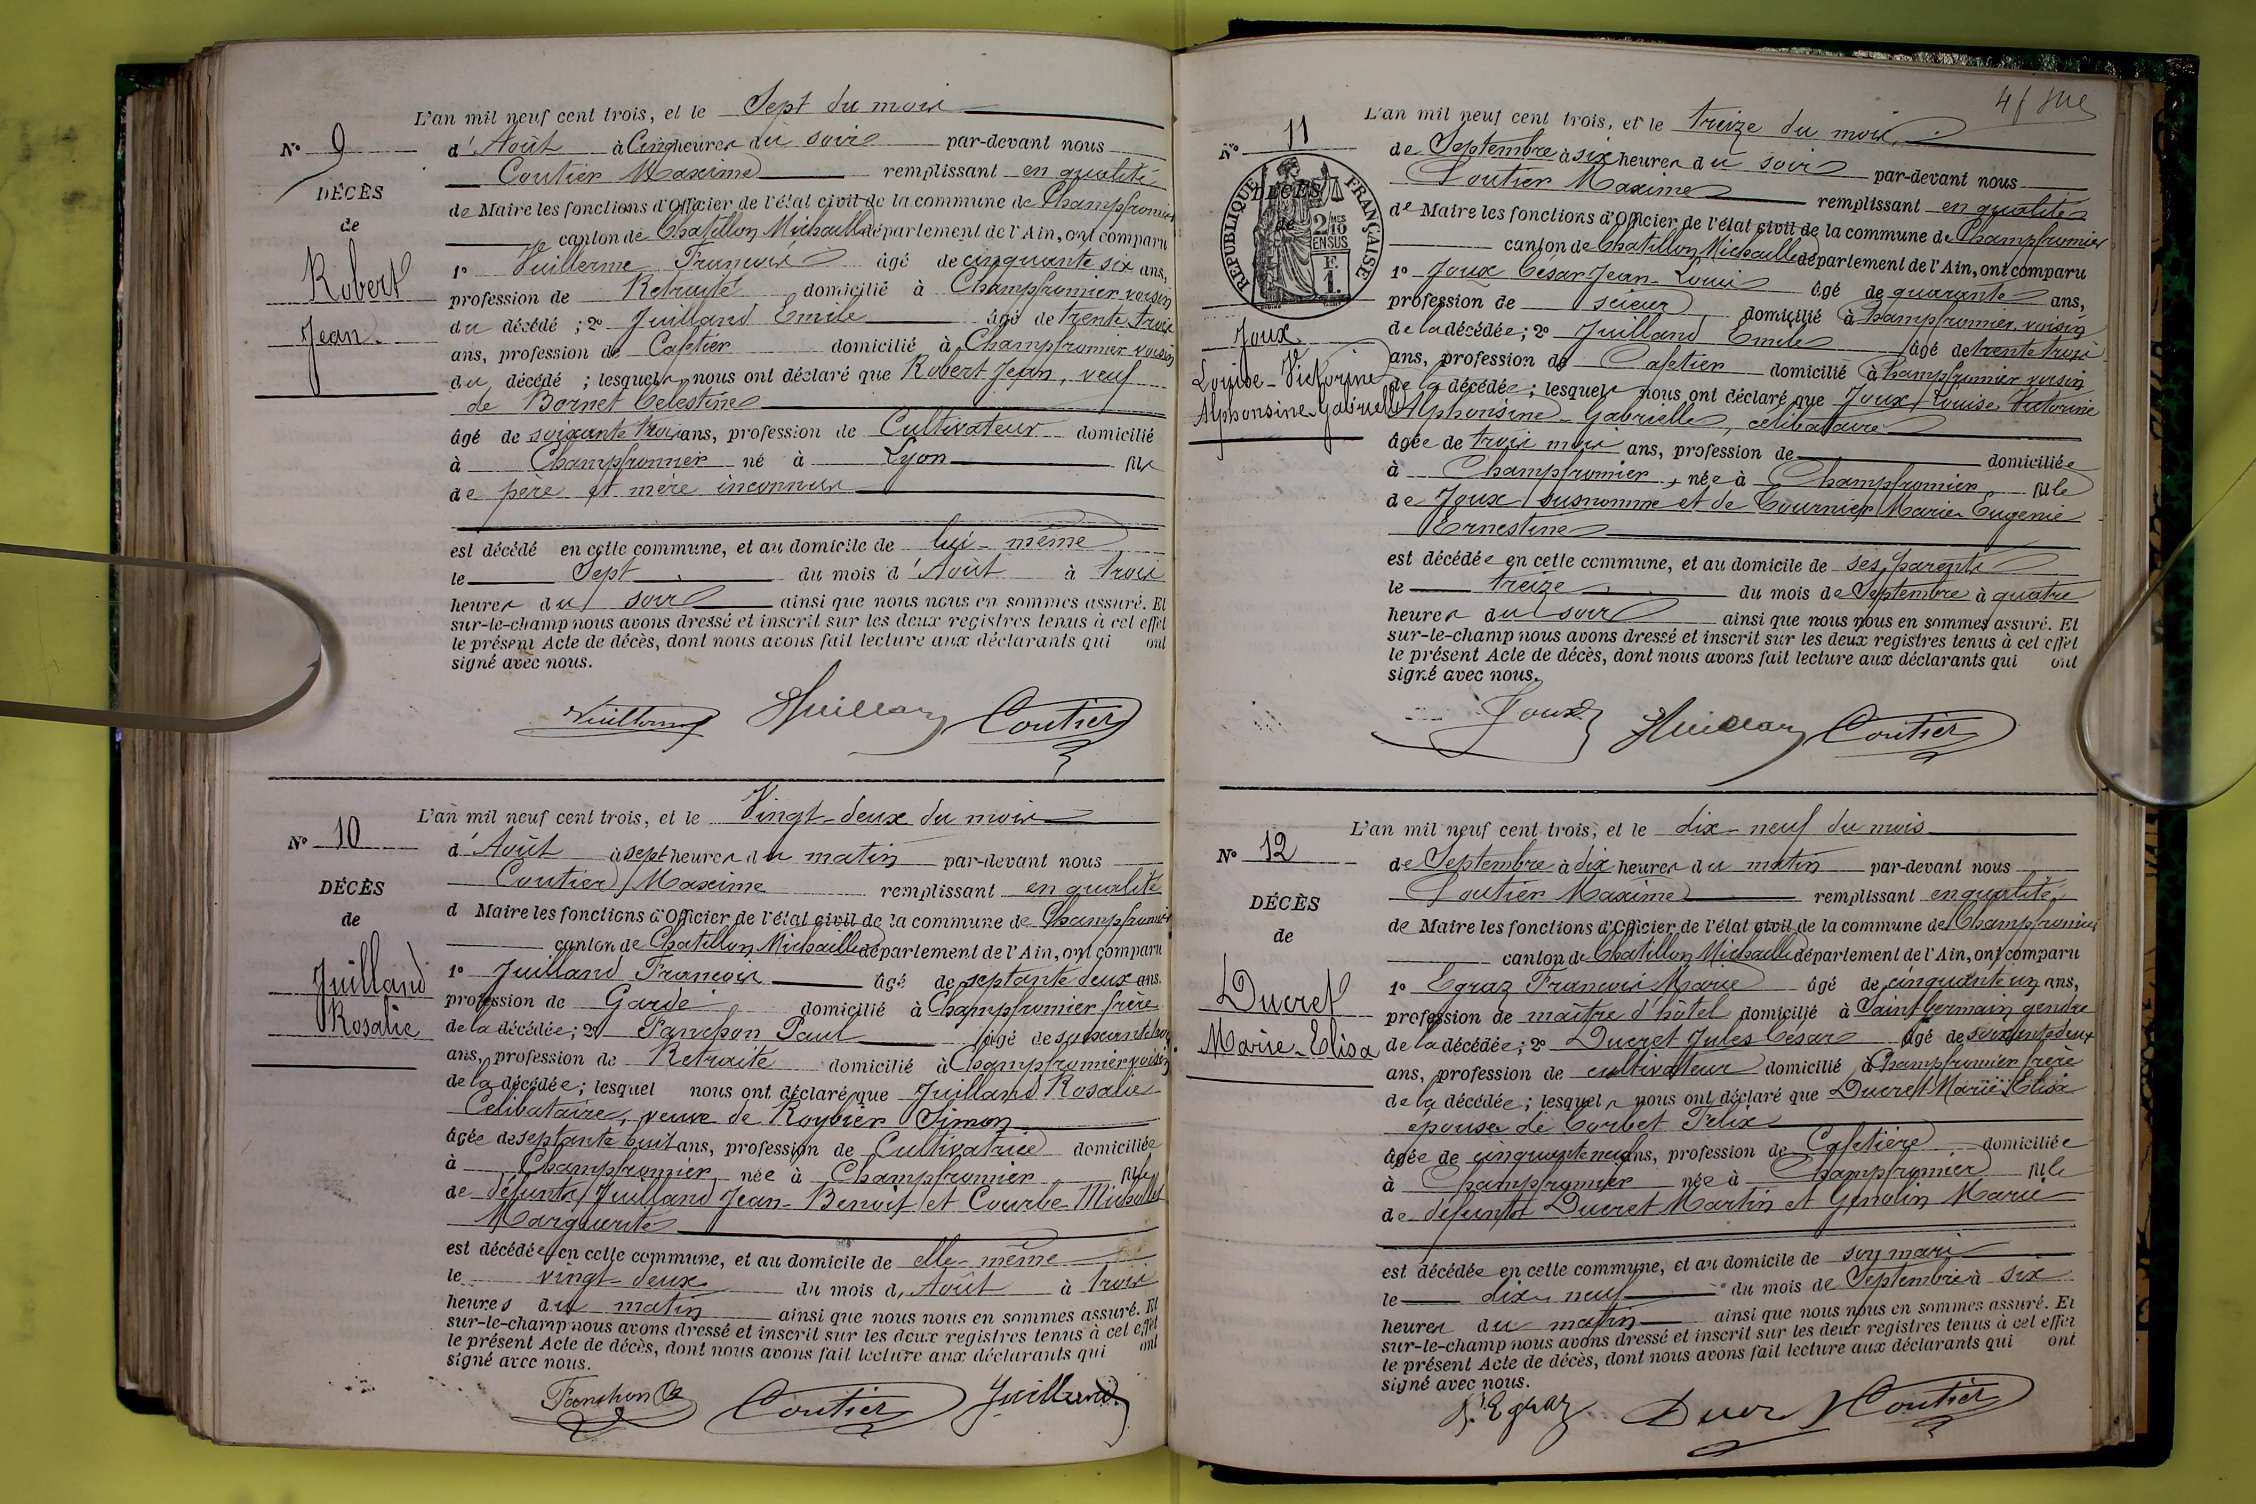 L'an mil neuf cent trois, et le Sept du mois
N° 9
d'Août à Cinq heures du soir par-devant nous
Coutier Maxime remplissant en qualité
DÉCÈS
de Maire les fonctions d'Officier de l'état civil de la commune de Champfromier
de
canton de Chatillon Michaille département de l'Ain, ont comparu
Robert
1° Vuillerme François âgé de cinquante six ans,
profession de Retraité domicilié à Champfromier voisin
Jean
du décédé ; 2° Juilland Emile âgé de trente trois
ans, profession de Cafetier domicilié à Champfromier voisin
du décédé ; lesquels nous ont déclaré que Robert Jean, veuf
de Bornet Célestine
âgé de soixante trois ans, profession de Cultivateur domicilié
à Champfromier né à Lyon fils
de père et mère inconnus
est décédé en cette commune, et au domicile de lui-même
le Sept du mois d'Août à trois
heures du soir ainsi que nous nous en sommes assuré. Et
sur-le-champ nous avons dressé et inscrit sur les deux registres tenus à cet effet
le présent Acte de décès, dont nous avons fait lecture aux déclarants qui ont
signé avec nous.
Juilland Coutier
L'an mil neuf cent trois, et le Vingt-deux du mois
N° 10
d'Août à sept heures du matin par-devant nous
Coutier Maxime remplissant en qualité
DÉCÈS
d Maire les fonctions d'Officier de l'état civil de la commune de Champfromier
de
canton de Chatillon Michaille département de l'Ain, ont comparu
Juilland
1° Juilland François âgé de septante deux ans.
profession de Garde domicilié à Champfromier frère
Rosalie
de la décédée ; 2° Fanchon Paul âgé de soixante trois
ans, profession de Retraite domicilié à Champfromier voisin
de la décédée ; lesquel nous ont déclaré que Juilland Rosalie
Célibataire, veuve de Roybier Simon
âgée de septante huit ans, profession de Cultivatrice domiciliée
à Champfromier née à Champfromier fille
de défunts Juilland Jean-Benoit et Courbe-Michollet
Marguerite
est décédée en cette commune, et au domicile de elle-même
le vingt-deux du mois d'Août à trois
heures du matin ainsi que nous nous en sommes assuré. Et
sur-le-champ nous avons dressé et inscrit sur les deux registres tenus à cet effet
le présent Acte de décès, dont nous avons fait lecture aux déclarants qui ont
signé avec nous.
Fanchon Coutier Juilland
L'an mil neuf cent trois, et le treize du mois
N° 11
de Septembre à six heures du soir par-devant nous
Coutier Maxime remplissant en qualité
DÉCÈS
de
RÉPUBLIQUE FRANÇAISE
2/10 MES
EN SUS
F.
1.
de Maire les fonctions d'Officier de l'état civil de la commune de Champfromier
canton de Chatillon Michaille département de l'Ain, ont comparu
1° Joux César Jean-Louis âgé de quarante ans,
profession de scieur domicilié à Champfromier voisin
Joux
de la décédée ; 2° Juilland Emile âgé de trente trois
ans, profession de Cafetier domicilié à Champfromier voisin
Louise-Victorine
de la décédée ; lesquels nous ont déclaré que Joux Louise Victorine
Alphonsine-Gabrielle
Alphonsine-Gabrielle, célibataire
âgée de trois mois ans, profession de domiciliée
à Champfromier, née à Champfromier fille
de Joux susnommé et de Tournier Marie Eugenie
Ernestine
est décédée en cette commune, et au domicile de ses parents
le treize du mois de Septembre à quatre
heures du soir ainsi que nous nous en sommes assuré. Et
sur-le-champ nous avons dressé et inscrit sur les deux registres tenus à cet effet
le présent Acte de décès, dont nous avons fait lecture aux déclarants qui ont
signé avec nous.
Joux Juilland Coutier
L'an mil neuf cent trois, et le dix-neuf du mois
N° 12
de Septembre à dix heures du matin par-devant nous
Coutier Maxime remplissant en qualité
DÉCÈS
de Maire les fonctions d'Officier de l'état civil de la commune de Champfromier
de
canton de Chatillon Michaille département de l'Ain, ont comparu
Ducret
1° Egraz François Marie âgé de cinquante un ans,
profession de maître d'hôtel domicilié à Saint Germain gendre
Marie-Elisa
de la décédée ; 2° Ducret Jules César âgé de soixante deux
ans, profession de cultivateur domicilié à Champfromier frère
de la décédée ; lesquels nous ont déclaré que Ducret Marie Elisa
épouse de Corbet Félix
âgée de cinquante neuf ans, profession de Cafetière domiciliée
à Champfromier née à Champfromier fille
de défunts Ducret Martin et Genolin Marie
est décédée en cette commune, et au domicile de son mari
le dix-neuf du mois de Septembre à six
heures du matin ainsi que nous nous en sommes assuré. Et
sur-le-champ nous avons dressé et inscrit sur les deux registres tenus à cet effet
le présent Acte de décès, dont nous avons fait lecture aux déclarants qui ont
signé avec nous.
Egraz Ducret Coutier